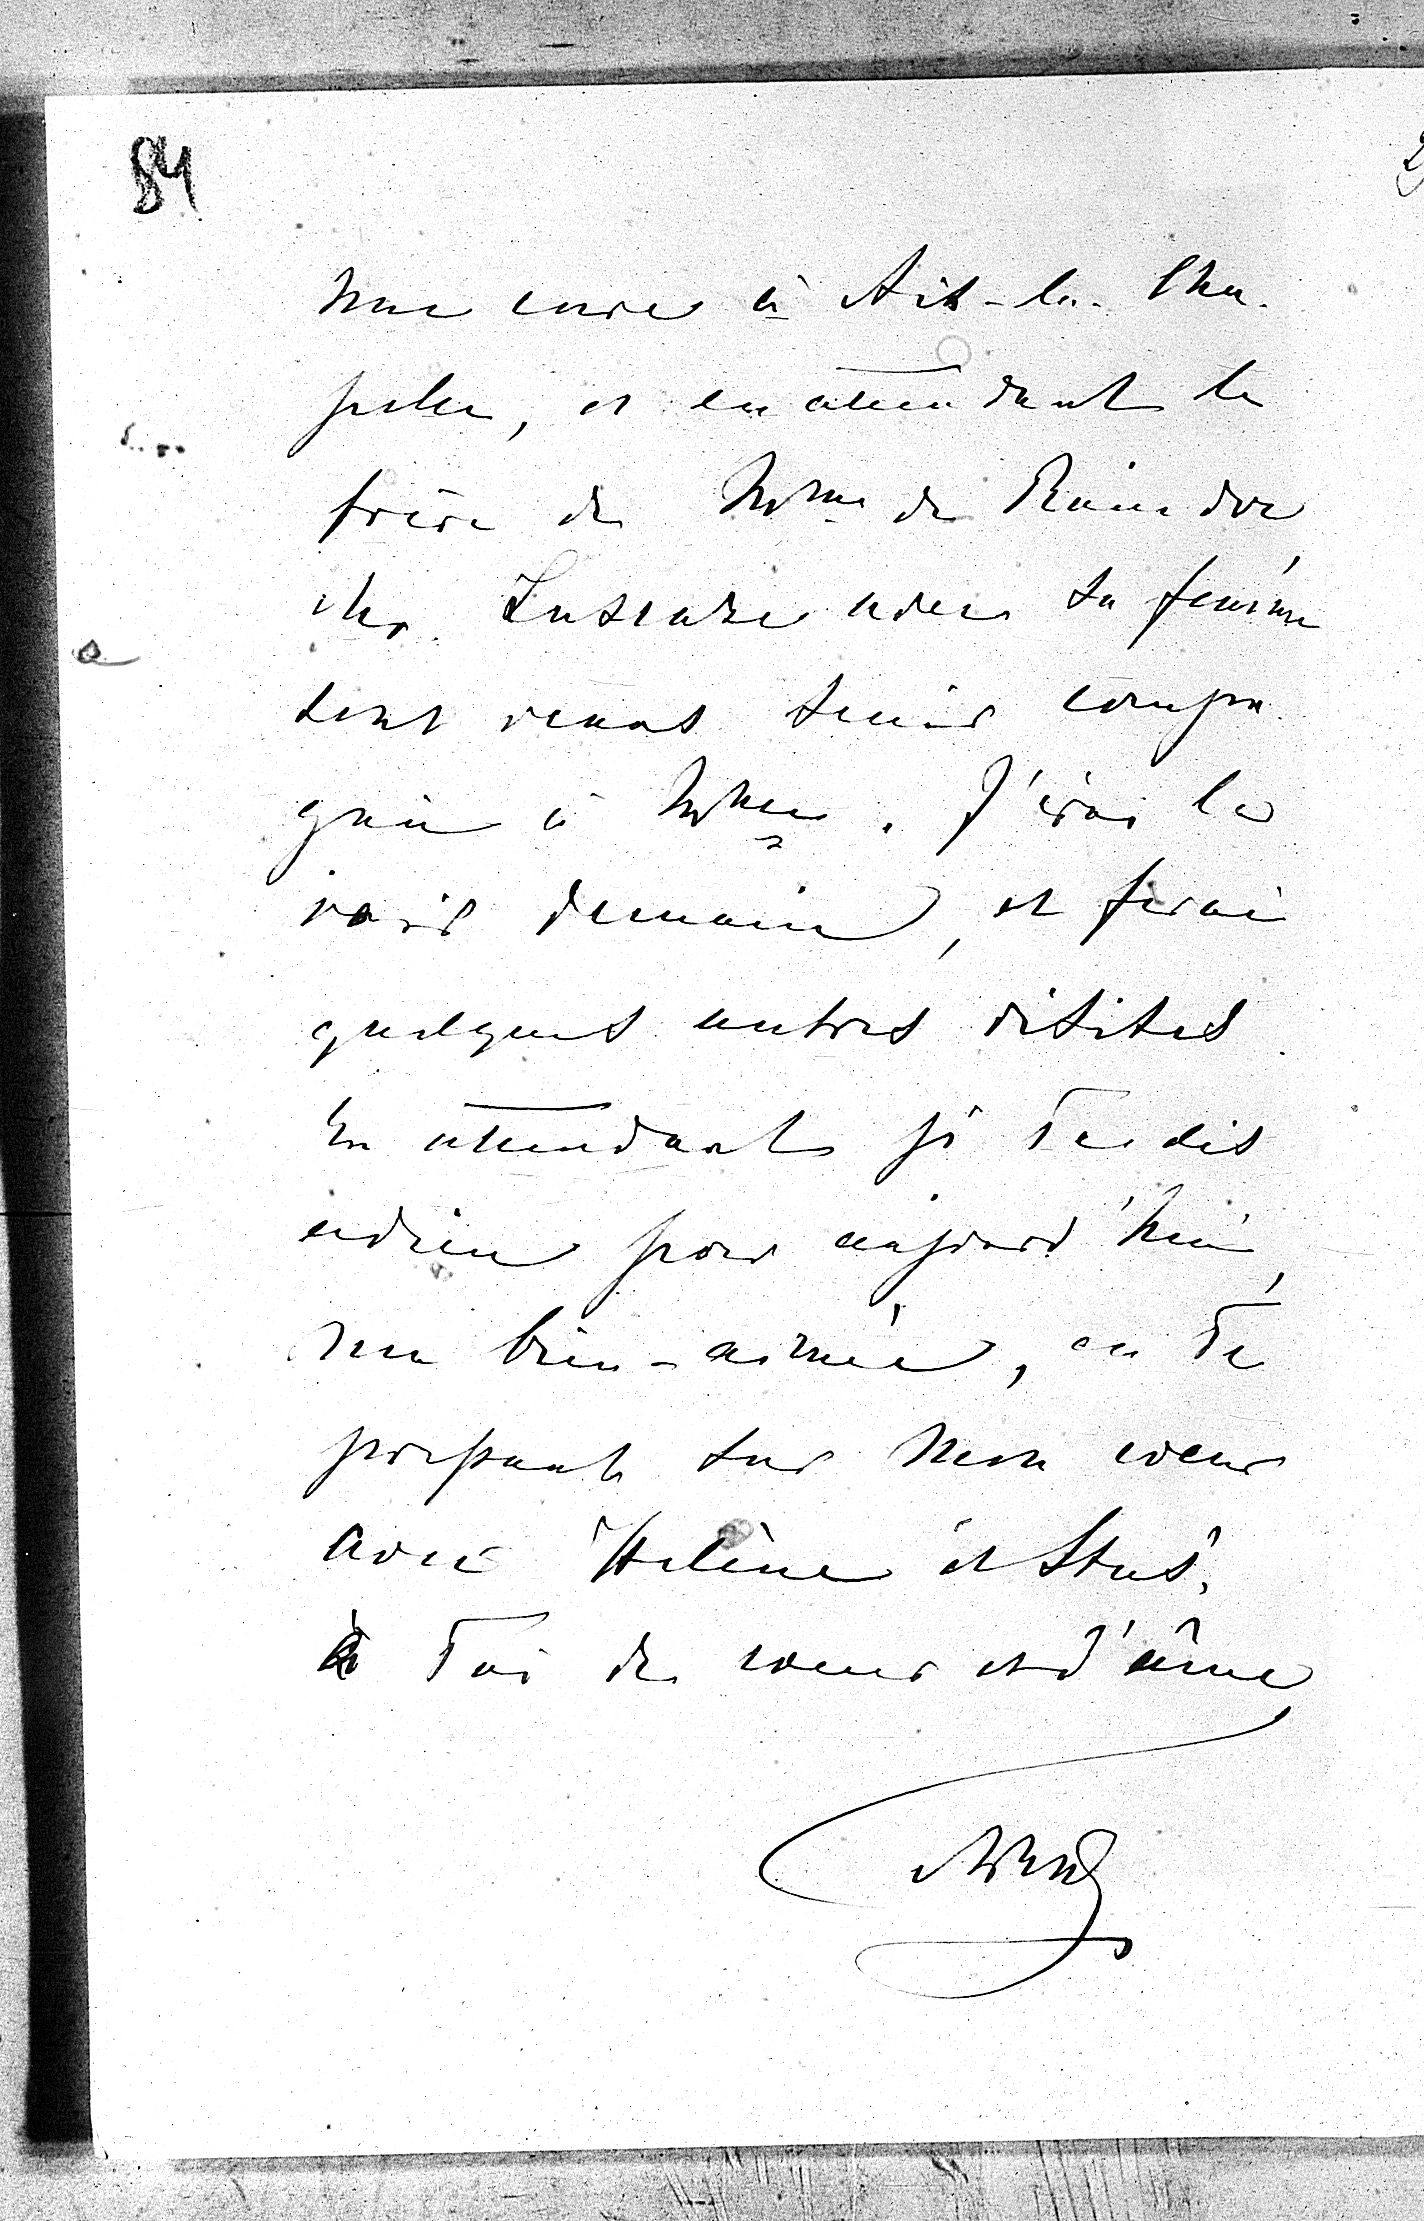 84
une cure à Aix-la-Cha-
pelle, et en attendant le
frère de Mme de
Mr. avec sa femme
sont venus tenir compa-
gnie à Mme. J'irai le
voir demain, et ferai
quelques autres visites.
En attendant je Te dis
adieu pour aujourd'hui,
ma bien-aimée, en Te
pressant sur mon coeur
avec Hélène et Stas.
à Toi de coeur et d'âme